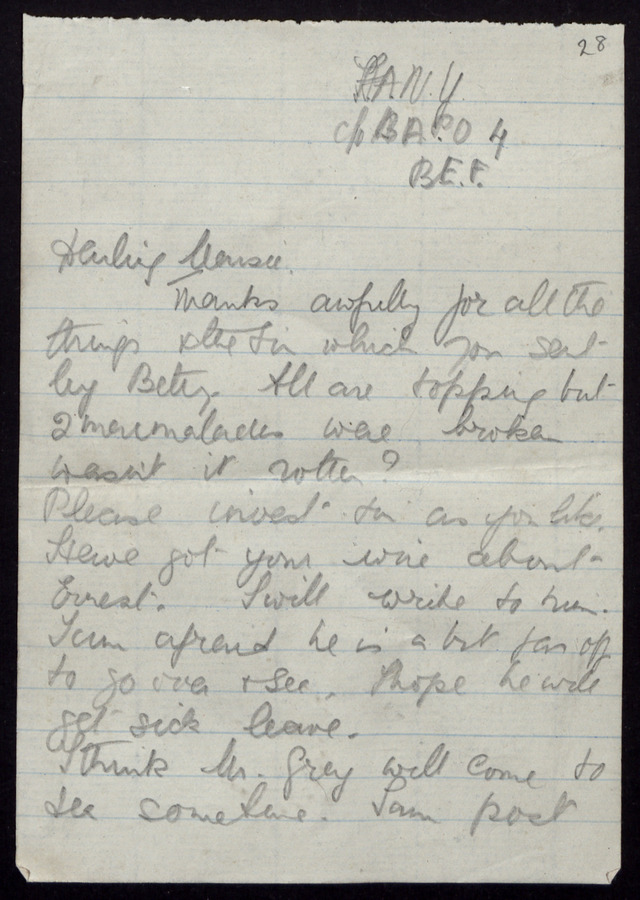 28
F.A.N.Y.
c/o B.A.P.O 4
B.E.F.
Darling Mousie.
Thanks awfully for all the
things & the tin which you sent
by Betty. All are topping but
2 marmalades were broken
wasnt it rotten?
Please invest tin as you like.
Have got your wire about
Ernest. I will write to him.
I am afraid he is a bit far off
to go over & see. I hope he will
get sick leave.
I think Mr. Grey will come to
tea sometime. I am post